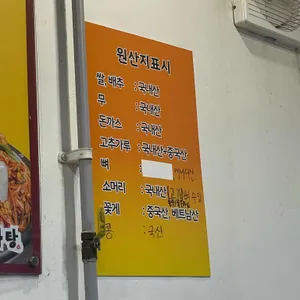 원산지표시
쌀,배추 : 국내산
무 : 국내산
돈까스 : 국내산
고추가루 : 국내산+중국산
뼈
소머리 : 국내산
꽃게 : 중국산, 베트남산
콩 : 국산
탕